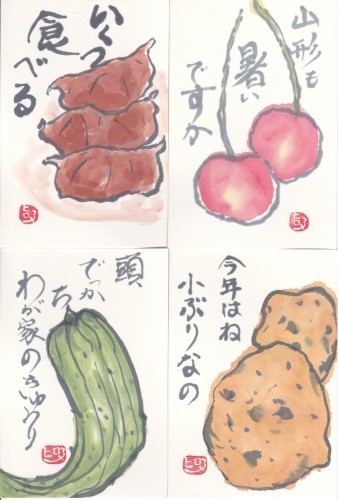 いくつ
食べる
山形も
暑い
ですか
頭
でっかち
わが家のきゅうり
今年はね
小ぶりなの